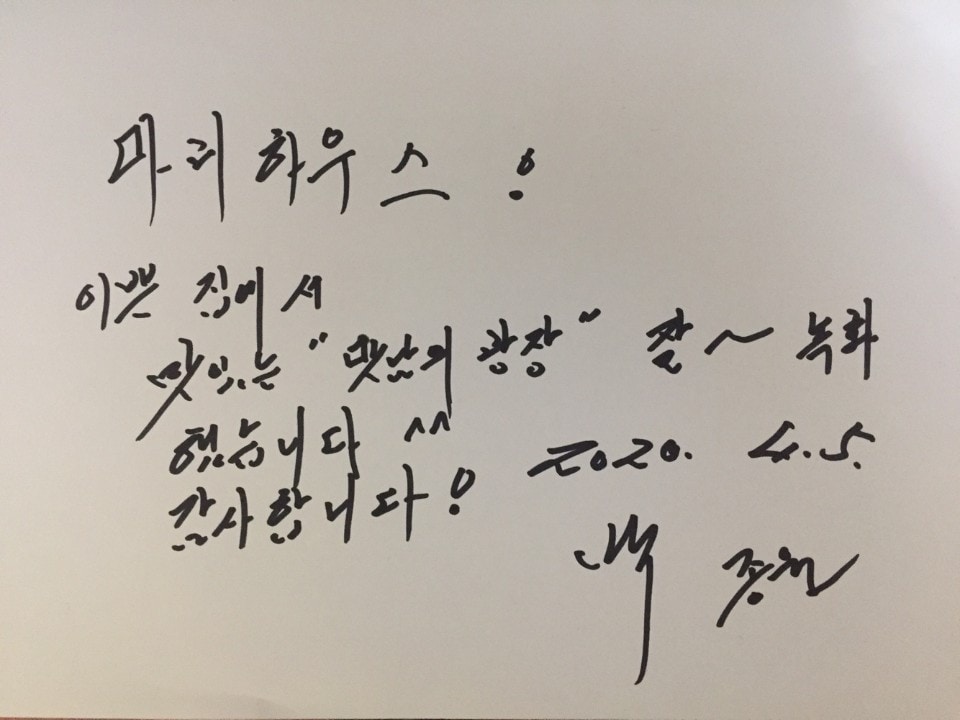 마리하우스!
이쁜 집에서
맛있는 "맛남의 광장" 잘~ 녹화
했습니다 ^^
감사합니다!
2020. 4.5.
백종원